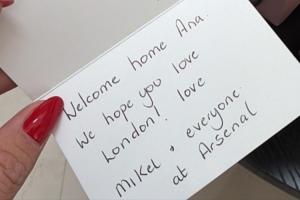 Welcome home Ana.
We hope you love
London! love
Mikel & everyone
at Arsenal